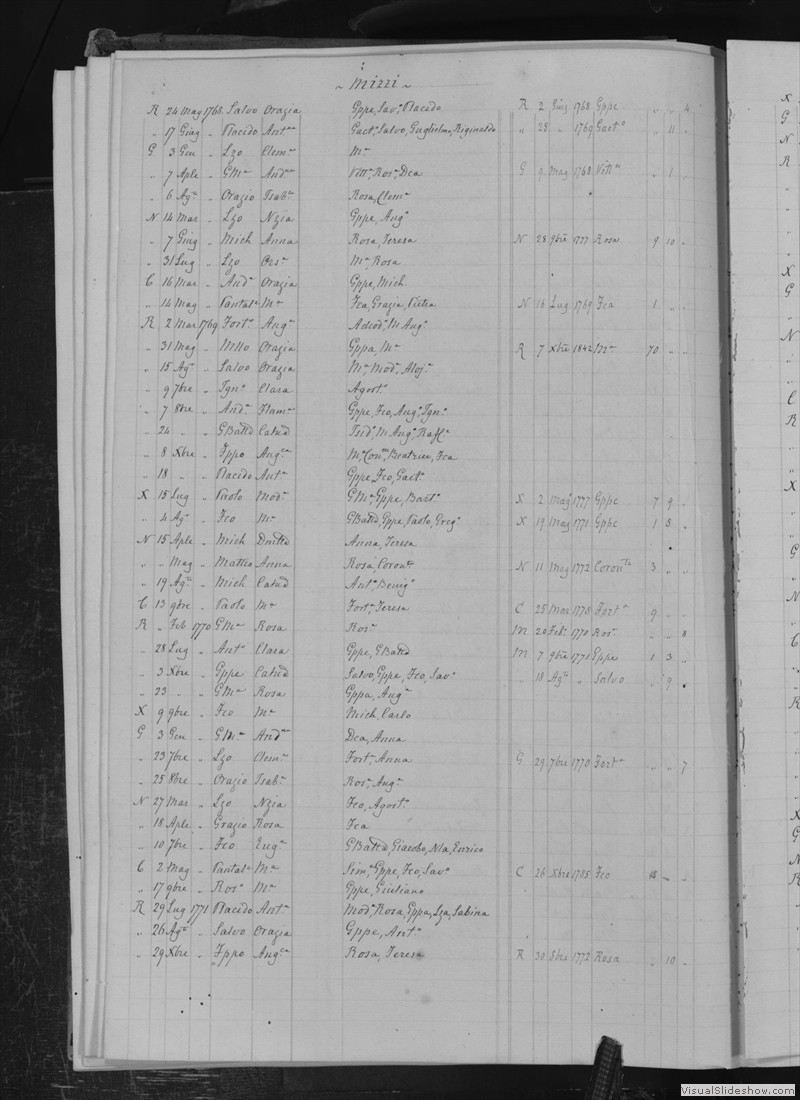 ~ Mizzi ~
R 24 Mag 1768 Salvo Orazia Gppe, Sav.º Placido R 2 Giug 1768 Gppe „ „ 4
„ 17 Giug „ Placido Ant.na Gaet.º Salvo, Guglielmo, Reginaldo „ 28 „ 1769 Gaet.º „ 11 „
G 3 Gen „ Lzo Clem.a M.a
„ 7 Aple „ GM.a And.na Vitt.a Ros.a Dca G 9 Mag 1768 Vitt.a „ 1 „
„ 6 Ag.to „ Orazio Isab.a Rosa, Clem.a
N 14 Mar „ Lzo Nzia Gppe, Aug.º
„ 7 Giug „ Mich Anna Rosa, Teresa N 28 9bre 1777 Rosa 9 10 „
„ 31 Lug „ Lzo Ors.a M.a Rosa
C 16 Mar „ And.a Orazia Gppe, Mich
„ 14 Mag „ Pantal.º M.a Fca, Grazia, Pietra N 16 Lug 1769 Fca 1 „ „
R 2 Mar 1769 Fort.º Aug.a Adeod.º M Aug.a
„ 31 Mag „ Mllo Orazia Gppa, M.a R 7 Xbre 1842 M.a 70 „ „
„ 15 Ag.to „ Salvo Orazia M.a Mod.a Aloj.a
„ 9 7bre „ Ign.º Clara Agost.º
„ 7 8bre „ And.a Flam.a Gppe, Fco, Aug.º Ign.º
„ 24 „ „ GBatta Catna Isid.º M Aug.º Raff.e
„ 8 Xbre „ Fppo Aug.ca M, Con.ne Beatrice, Fca
„ 18 „ „ Placido Ant.a Gppe, Fco, Gaet.º
X 15 Lug „ Paolo Mod.a GM.a Gppe, Bart.º X 2 Mag 1777 Gppe 7 9 „
„ 4 Ag.to „ Fco M.a GBatta, Gppe, Paolo, Greg.º X 19 Mag 1771 Gppe 1 8 „
N 15 Aple „ Mich Dmtta Anna, Teresa
„ „ Mag „ Matteo Anna Rosa, Coron.ta N 11 Mag 1772 Coron.ta 3 „ „
„ 19 Ag.to „ Mich Catna Ant.º Benig.º
C 13 9bre „ Paolo M.a Fort.a Teresa C 25 Mar 1778 Fort.a 9 „ „
R „ Feb 1770 GM.a Rosa Ros.a M 20 Feb.º 1770 Ros.a „ „ 8
„ 28 Lug „ Ant.º Clara Gppe, GBatta M 7 9bre 1771 Gppe 1 3 „
„ 3 Xbre „ Gppe Catna Salvo, Gppe, Fco, Sav.º „ 18 Ag.to „ Salvo „ 9 „
„ 23 „ „ GM.a Rosa Gppa, Aug.a
X 9 9bre „ Fco M.a Mich, Carlo
G 3 Gen „ GM.a And.na Dca, Anna
„ 23 7bre „ Lzo Clem.a Fort.a Anna G 29 7bre 1770 Fort.a „ „ 7
„ 25 8bre „ Orazio Isab.a Ros.a Aug.a
N 27 Mar „ Lzo Nzia Fco, Agost.º
„ 18 Aple „ Grazio Rosa Fca
„ 10 7bre „ Fco Eug.a GBatta, Giacobo, Nla, Enrico
C 2 Mag „ Pantal.º M.a Sim.e Gppe, Fco, Sav.º C 26 Xbre 1785 Fco 15 „ „
„ 17 9bre „ Ros.º M.a Gppe, Giuliano
R 29 Lug 1771 Placido Ant.a Mod.a Rosa, Gppa, Lza, Sabina
„ 26 Ag.to „ Salvo Orazia Gppe, Ant.º
„ 29 Xbre „ Fppo Aug.ca Rosa, Teresa R 30 8bre 1772 Rosa „ 10 „
VisualSlideshow.com